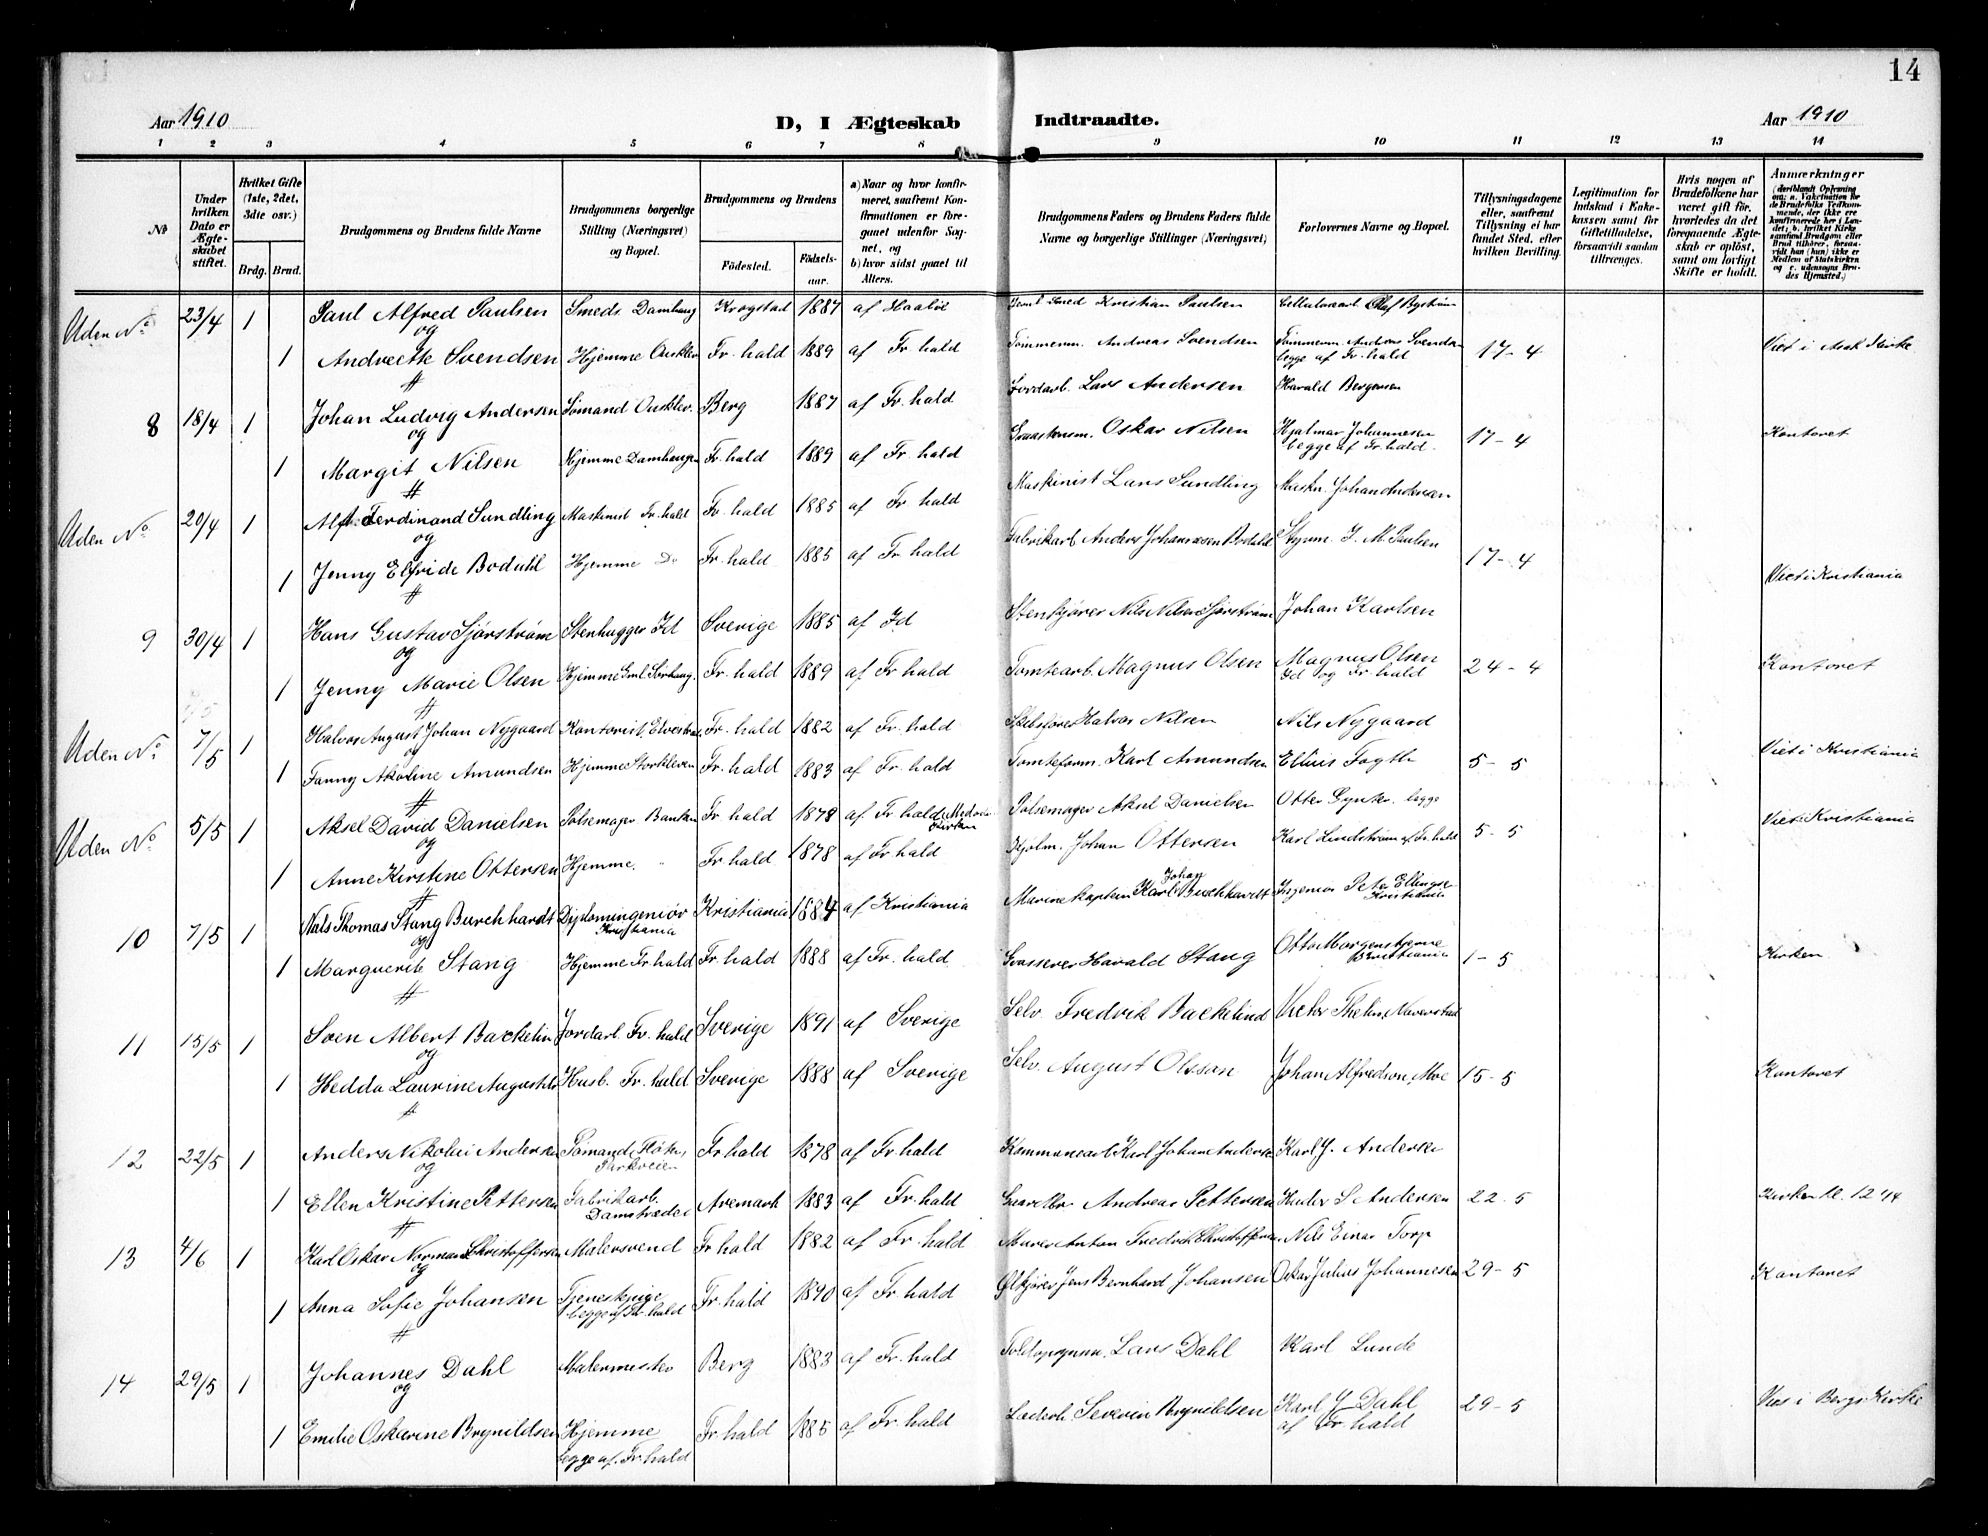 14
Aar 1910
D, I Ægteskab Indtraadte.
Aar 1910
1 2 3 4 5 6 7 8 9 10 11 12 13 14
№
Under hvilken Dato er Ægteskabet stiftet.
Hvilket Gifte (1ste, 2det, 3die osv.)
Brdg. Brud.
Brudgommens og Brudens fulde Navne
Brudgommens borgerlige Stilling (Næringsvei) og Bopæl.
Brudgommens og Brudens
Födested. Födselsaar.
a) Naar og hvor konfirmeret, saafremt Konfirmationen er foregaaet udenfor Sognet, og
b) hvor sidst gaaet til Alters.
Brudgommens Faders og Brudens Faders fulde Navne og borgerlige Stillinger (Næringsvei)
Forlovernes Navne og Bopæl.
Tillysningsdagene eller, saafremt Tillysning ei har fundet Sted, efter hvilken Bevilling.
Legitimation for Indskud i Enkekassen samt for Giftetilladelse, forsaavidt saadan tiltrænges.
Hvis nogen af Brudefolkene har været gift før, hvorledes da det foregaaende Ægteskab er opløst, samt om lovligt Skifte er holdt.
Anmærkninger
(deriblandt Oplysning om: a. Vaccination for de Brudefolks Vedkommende, der ikke ere konfirmerede her i Landet; b. hvilket Kirkesamfund Brudgom eller Brud tilhører, forsaavidt han (hun) ikke er Medlem af Statskirken og c. udensogns Brudes Hjemsted.)
Uden No 23/4 1 Paul Alfred Paulsen Smed Damhaug Krogstad 1887 af Kristian Paulsen
og
1 Svendsen Hjemme Fr. hald 1889 af Fr. hald Tømmerm. Andreas Svendsen Tømmerm. Andreas Svendsen begge af Fr. hald 17-4 Viet i Ask Kirke
8 18/4 1 Johan Ludvig Andersen Sømand Berg 1887 af Fr. hald Jordarb. Lars Andersen Harald Bergersen
og
1 Margit Nilsen Hjemme Damhaugen Fr. hald 1889 af Fr. hald Oskar Nilsen Hjalmar Johannesen begge af Fr. hald. 17-4 Kontoret
Uden No 20/4 1 Ferdinand Sundling Maskinist Fr. hald Fr. hald 1885 af Fr hald Maskinist Lars Sundling Maskn. Johan Andersen
og
1 Jenny Elfride Bodahl Hjemme Do Fr. hald 1885 af Fr. hald Fabrikarb Anders Johannesen Bodahl J. M. Paulsen 17-4 Viet i Kristiania
9 30/4 1 Hans Gustav Sjørstrøm Stenhugger Id Sverige 1885 af Id Stenkjører Nils Nilsen Sjørstrøm Johan Karlsen
og
1 Jenny Marie Olsen Hjemme Fr. hald 1889 af Fr. hald Tomtearb. Magnus Olsen Magnus Olsen Id og Fr hald 24-4 Kontoret
Uden No 7/5 1 Halvor August Johan Nygaard Kontorist, Fr. hald 1882 af Fr. hald Halvor Nilsen Nils Nygaard
og
1 Fanny Akoline Amundsen Hjemme Fr. hald 1883 af Fr. hald Tomteform. Karl Amundsen 5-5 Viet i Kristiania
Uden No 5/5 1 Aksel David Danielsen Pølsemager Banken Fr. hald 1878 af Fr. hald Pølsemager Danielsen begge
og
1 Anne Kirstine Ottersen Hjemme. " Fr. hald 1878 af Fr. hald Johan Ottersen Karl Lindstrøm af Fr. hald 5-5 Viet i Kristiania
10 7/5 1 Nils Thomas Stang Burchhardt Diplomingeniør Kristiania Kristiania 1884 af Kristiania Marinekaptein Johan Karl Burchhardt Ingeniør Peter Kristiania
og
1 Marguerite Stang Hjemme Fr. hald Fr. hald 1888 af Fr. hald Harald Stang Otto Morgenstjerne Kristiania 1-5 Kirken
11 15/5 1 Sven Albert Backelin Jordarb. Fr. hald Sverige 1891 af Sverige Selv. Fredrik Backelind Thelin,
og
1 Hedda Laurine Husb. Fr. hald Sverige 1888 af Sverige Selv. August Olssan Johan Alfredson, Moe 15-5 Kontoret
12 22/5 1 Anders Nikolai Andersen Sømand Parkveien Fr hald 1878 af Fr. hald Karl Johan Andersen Karl J. Andersen
og
1 Ellen Kristine Pettersen Fabrikarb. Damstrædet Aremark 1883 af Fr. hald Andreas Pettersen Andersen 22-5 Kirken
13 4/6 1 Karl Oskar Norman Christoffersen Malersvend Fr hald 1882 af Fr. hald Murer Anton Fredrik Christoffersen Nils Einar Torp
og
1 Anna Sofie Johansen Tjenestepige begge af Fr. hald Fr. hald 1890 af Fr. hald Ølkjører Jens Bernhard Johansen Oskar Julius Johannesen 29-5 Kontoret
14 29/5 1 Johannes Dahl Malermester Berg 1883 af Fr. hald Lars Dahl Karl Lunde
og
1 Emilie Oskarine Brynildsen Hjemme begge af. Fr. hald Fr. hald 1885 af Fr. hald Severin Brynildsen Karl J Dahl af Fr hald 29-5 Viet i Bergs Kirke